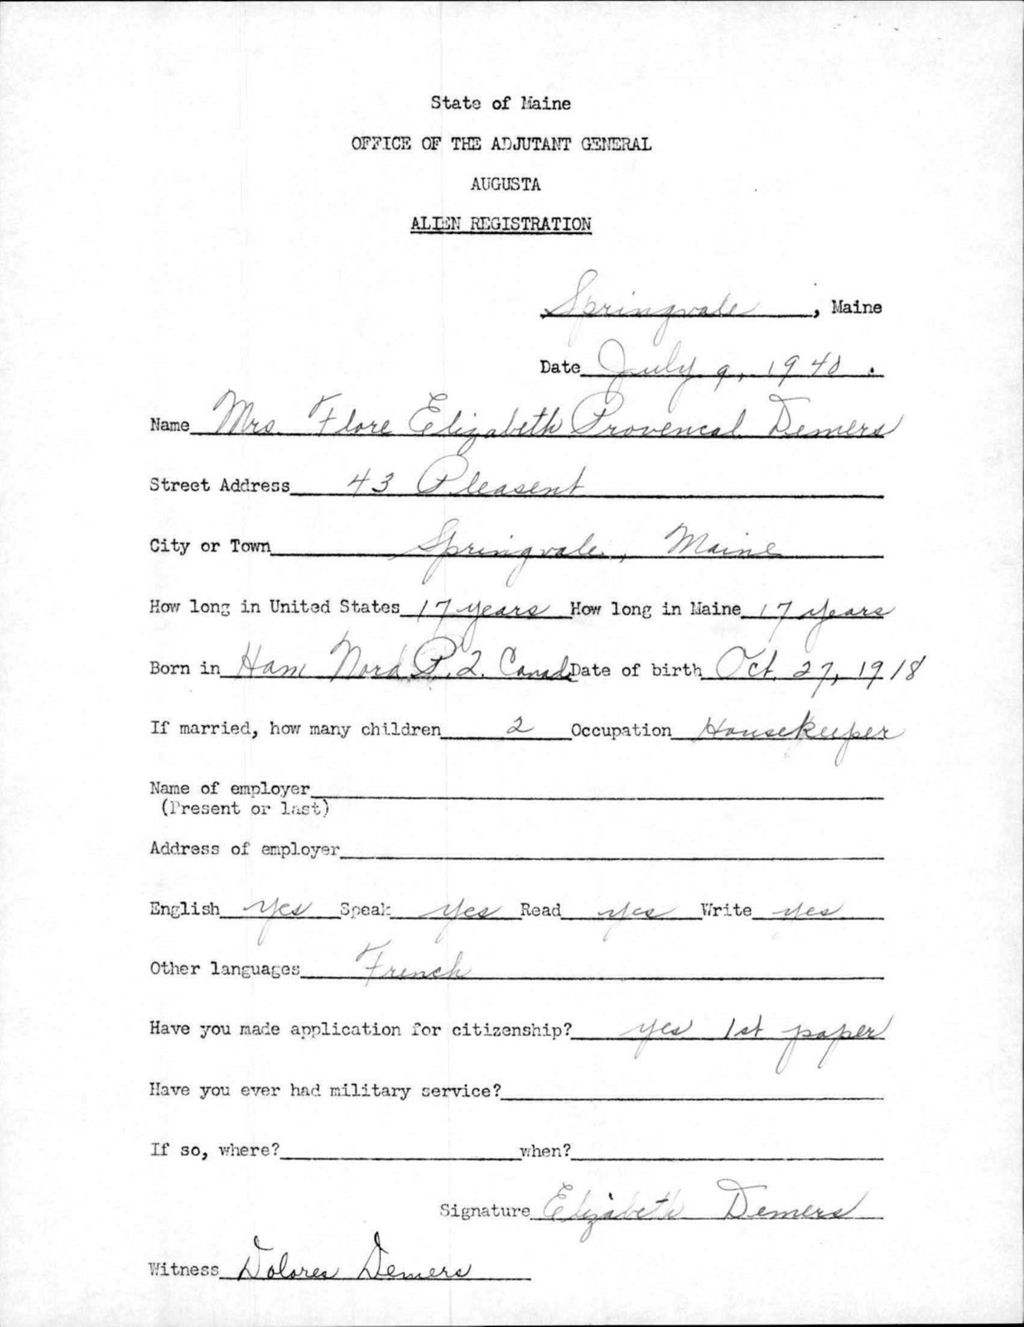 State of Maine
OFFICE OF THE ADJUTANT GENERAL
AUGUSTA
ALIEN REGISTRATION
Springvale, Maine
Date July 9, 1940.
Name Mrs. Flore Elizabeth Provencal Demers
Street Address 43 Pleasent
City or Town Springvale, Maine
How long in United States 17 years How long in Maine 17 years
Born in Ham Nord P.Q. Canada Date of birth Oct. 27, 1918
If married, how many children 2 Occupation Housekeeper
Name of employer
(Present or last)
Address of employer
English yes Speak yes Read yes Write yes
Other languages French
Have you made application for citizenship? yes 1st paper
Have you ever had military service?
If so, where? when?
Signature Elizabeth Demers
Witness Dolores Demers